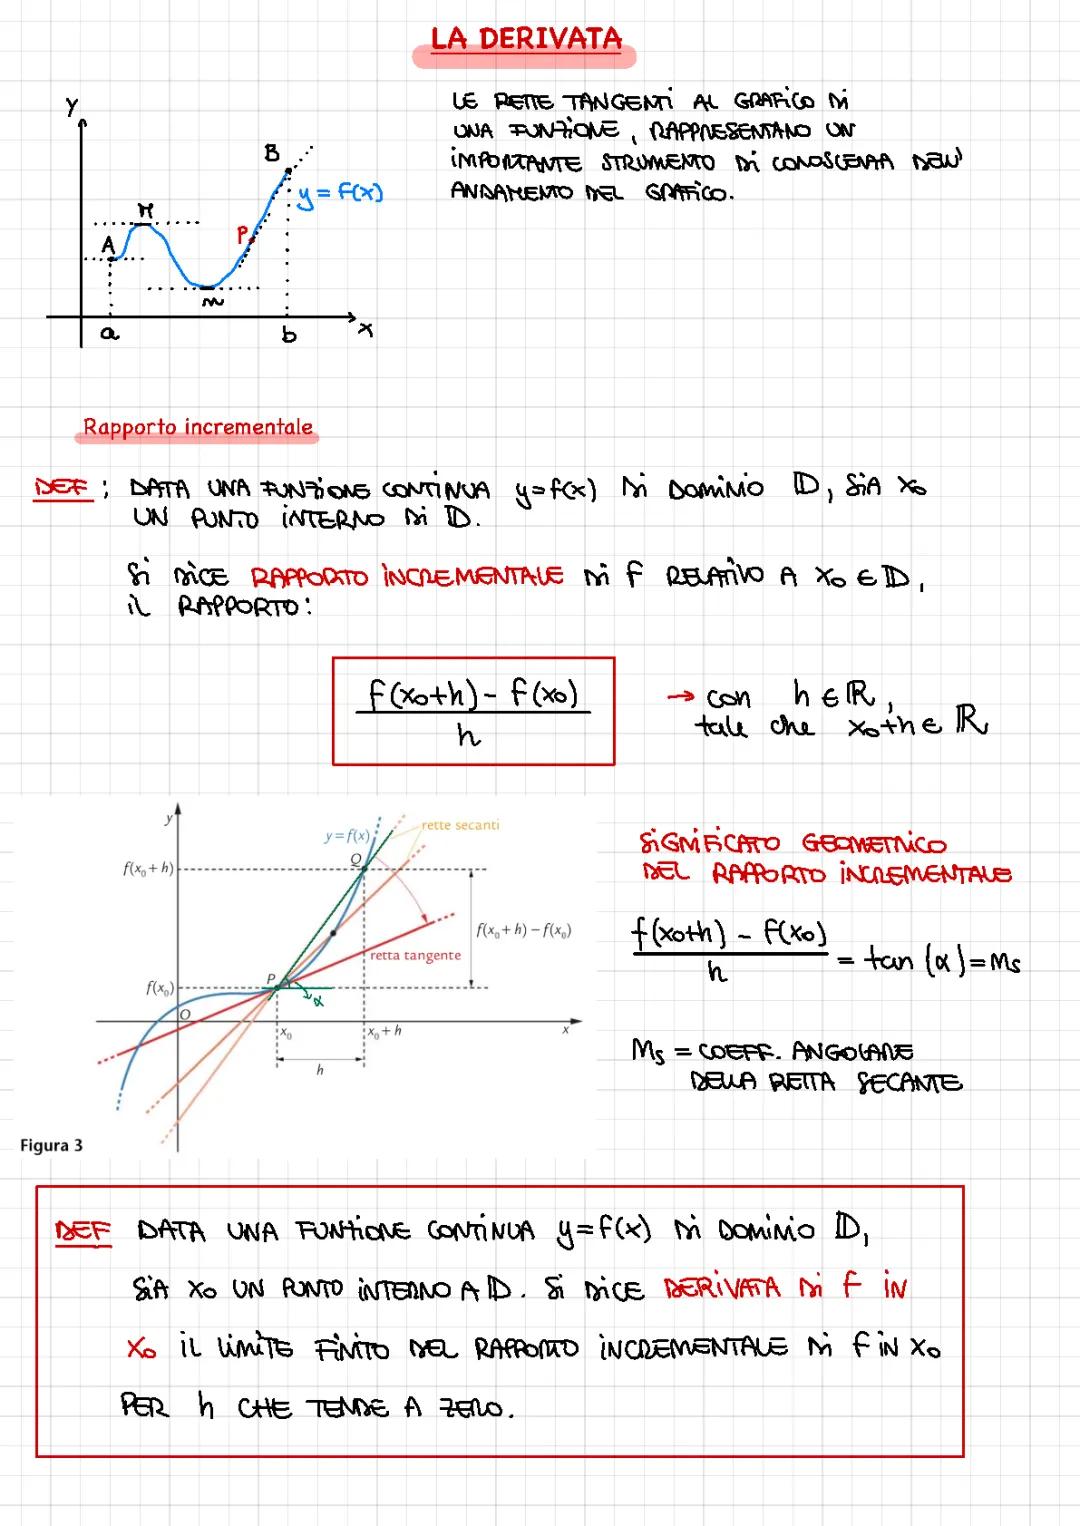 LA DERIVATA
LE RETTE TANGENTI AL GRAFICO DI
UNA FUNZIONE, RAPPRESENTANO UN
IMPORTANTE STRUMENTO DI CONOSCENZA DELL'
ANDAMENTO DEL GRAFICO.
y
B
y = f(x)
M
A
P
m
a
b
x
Rapporto incrementale
DEF : DATA UNA FUNZIONE CONTINUA y=f(x) DI DOMINIO D, SIA x₀
UN PUNTO INTERNO DI D.
SI DICE RAPPORTO INCREMENTALE DI f RELATIVO A x₀ ∈ D,
IL RAPPORTO:
f(x₀+h) - f(x₀)
h
→ con h ∈ ℝ,
tale che x₀+h ∈ ℝ
y
y = f(x)
rette secanti
Q
f(x₀ + h)
f(x₀ + h) – f(x₀)
retta tangente
P
f(x₀)
α
O
x₀
x₀ + h
x
h
Figura 3
SIGNIFICATO GEOMETRICO
DEL RAPPORTO INCREMENTALE
f(x₀+h) - f(x₀)
h
= tan (α) = Ms
Ms = COEFF. ANGOLARE
DELLA RETTA SECANTE
DEF DATA UNA FUNZIONE CONTINUA y=f(x) DI DOMINIO D,
SIA x₀ UN PUNTO INTERNO A D. SI DICE DERIVATA DI f IN
x₀ IL LIMITE FINITO DEL RAPPORTO INCREMENTALE DI f IN x₀
PER h CHE TENDE A ZERO.